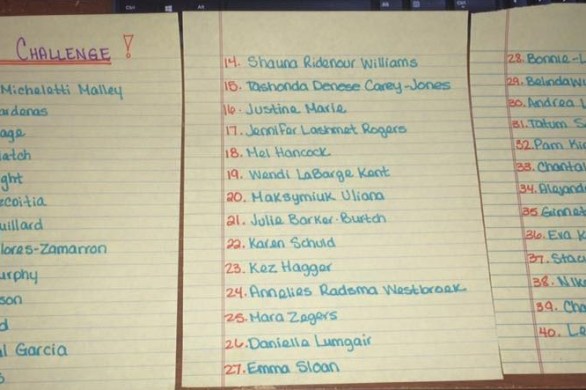 CHALLENGE!
Micheletti Malley
age
atch
ght
coitia
uillard
lores-Zamarron
urphy
son
d
l Garcia
14. Shauna Ridenour Williams
15. Tashonda Denese Carey-Jones
16. Justine Marie
17. Jennifer Lashmet Rogers
18. Mel Hancock
19. Wendi LaBarge Kent
20. Maksymiuk Uliana
21. Julie Barker-Burtch
22. Karen Schuld
23. Kez Hagger
24. Annelies Radsma Westbroek
25. Mara Zegers
26. Danielle Lumgair
27. Emma Sloan
28. Bonnie-L
29. Belinda W
30. Andrea L
31. Tatum S
32. Pam Ki
33. Chantal
34. Alejand
35. Ginnet
36. Eva K
37. Stac
38. Nik
39. Cha
40. Le